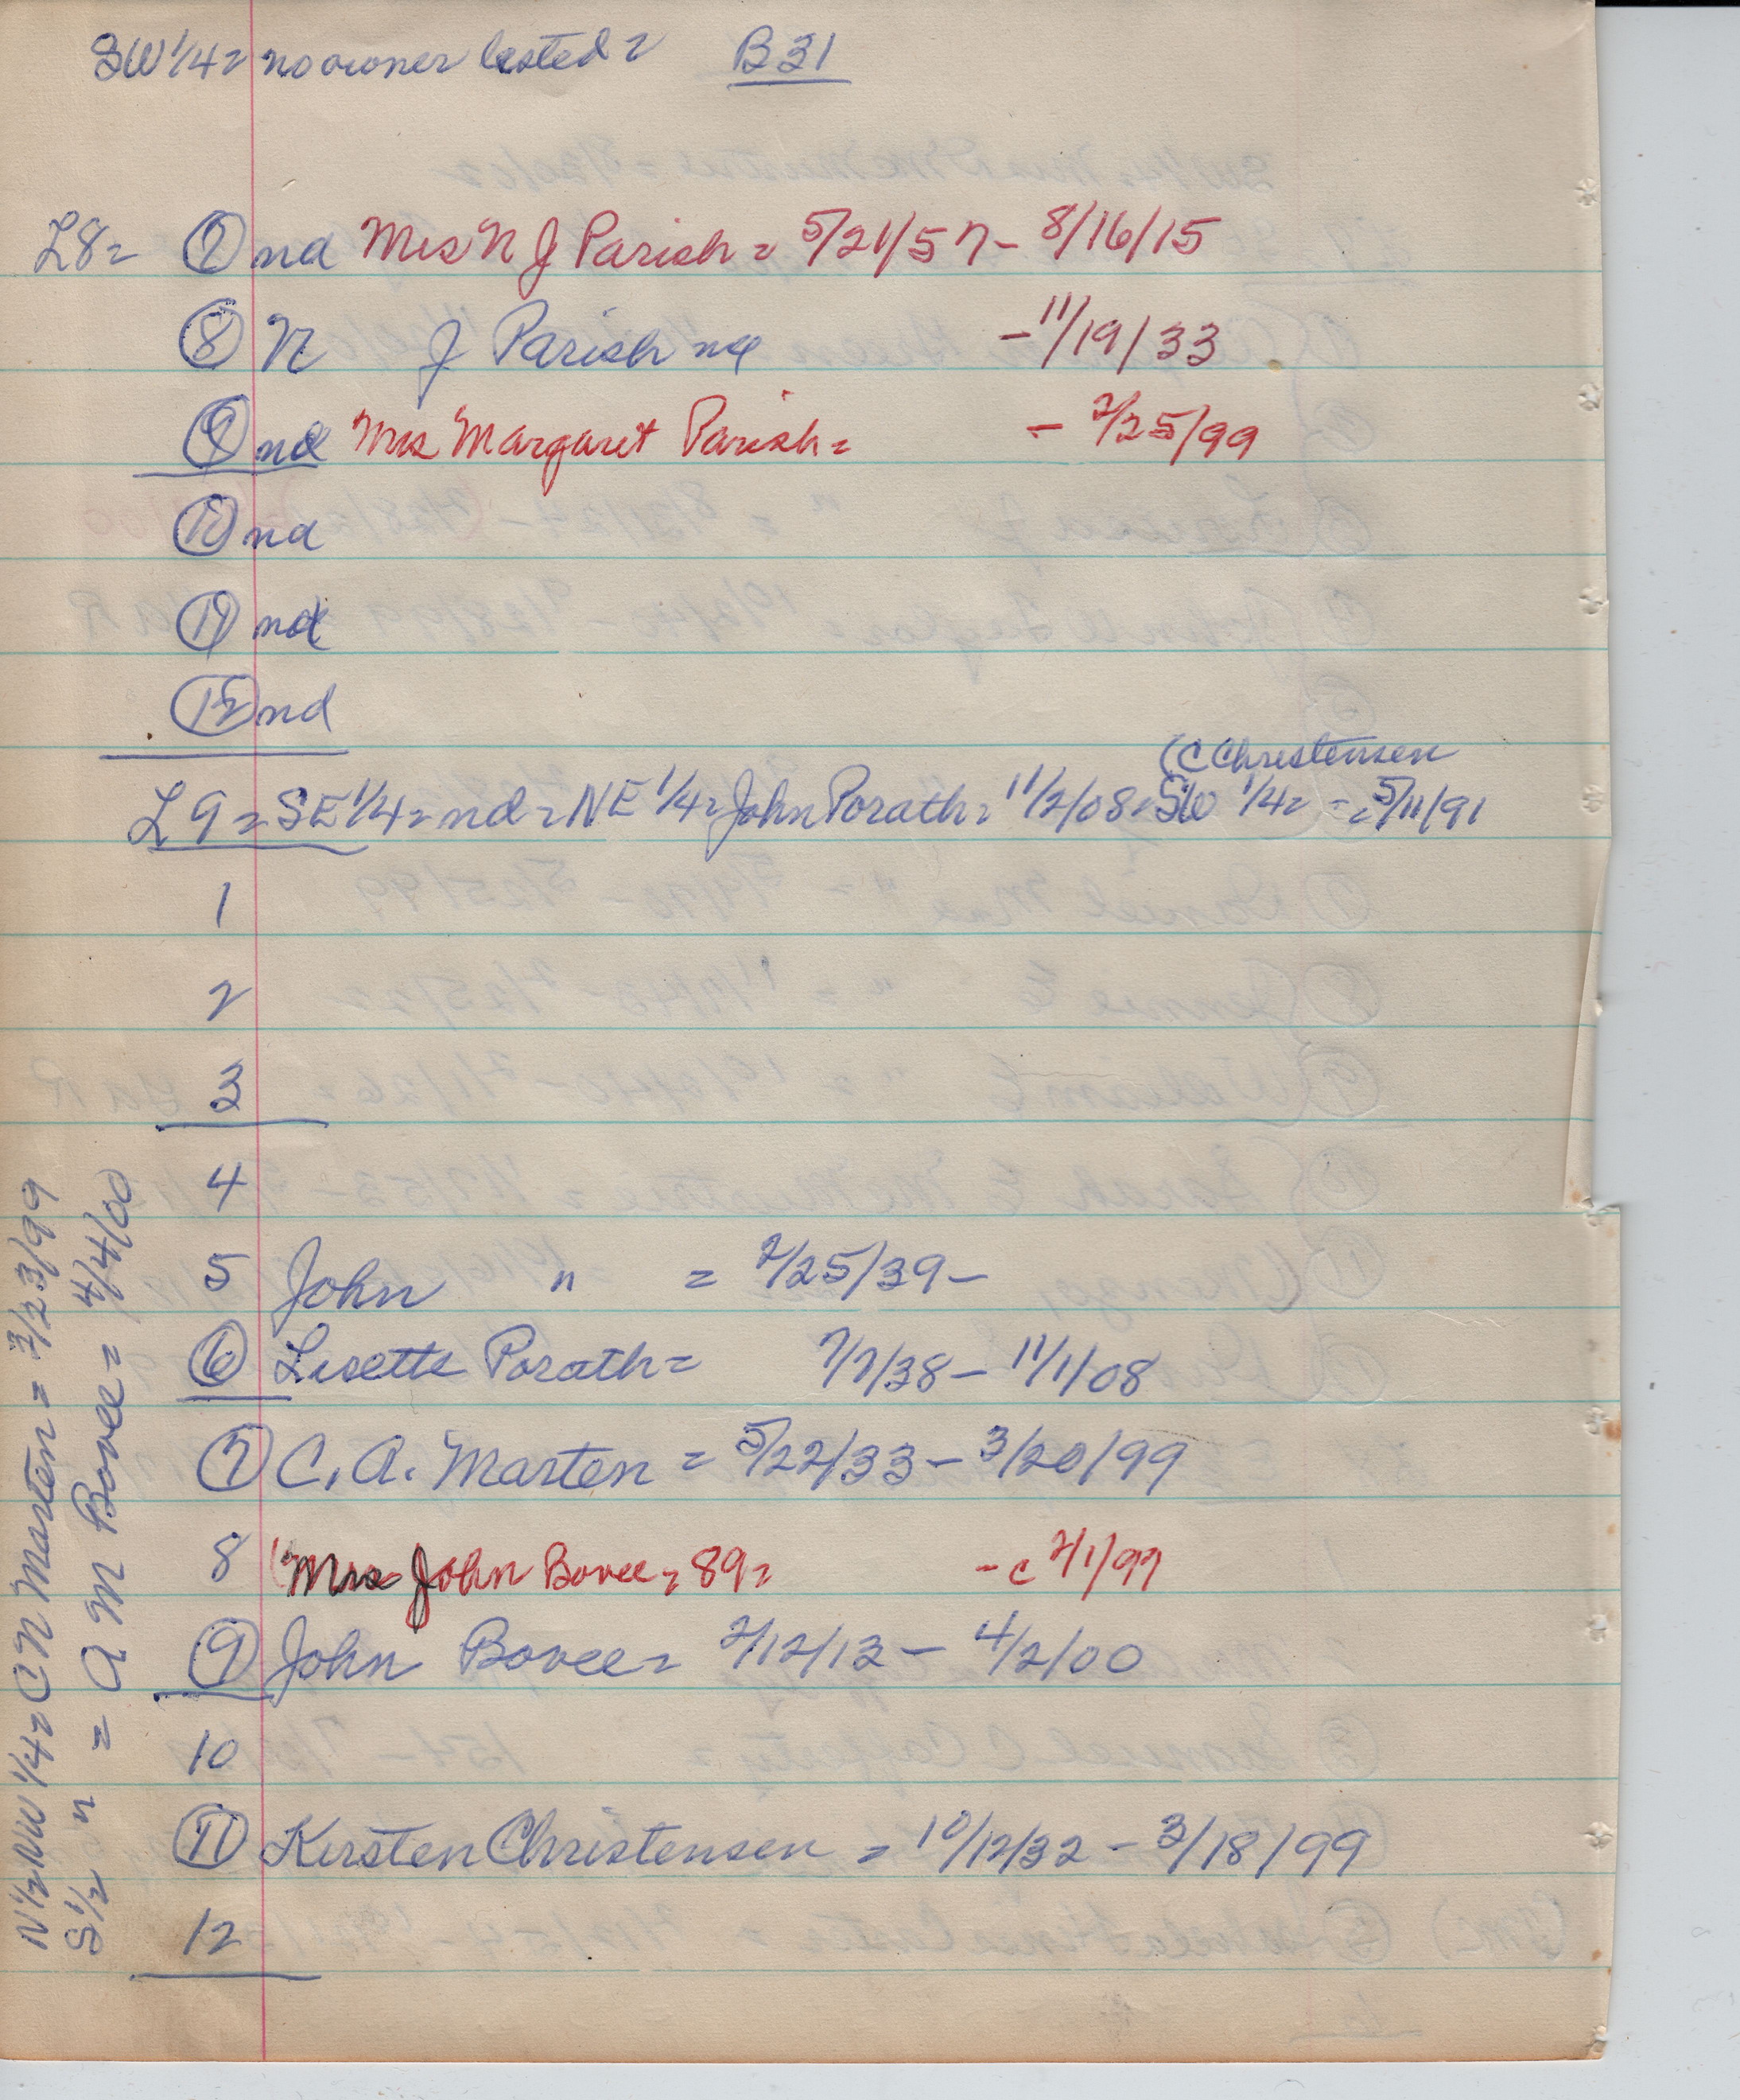 SW 1/4 = no owner listed = B31
L8 = (7) nd Mrs N J Parish = 5/21/57 - 8/16/15
(8) N J Parish nd - 11/19/33
(9) nd Mrs Margaret Parish = - 2/25/99
(10) nd
(11) nd
(12) nd
(C Christensen
L9 = SE 1/4 = nd = NE 1/4 = John Porath = 11/2/08 = SW 1/4 = - c 5/11/91
1
2
3
4
5 John " = 2/25/39 -
(6) Lisette Porath = 7/7/38 - 11/1/08
(7) C. A. Marten = 5/22/33 - 3/20/99
8 (Mrs John Bovee = 89 = - c 2/1/99
(9) John Bovee = 2/12/13 - 4/2/00
10
(11) Kirsten Christensen = 10/12/32 - 3/18/99
12
N 1/2 NW 1/4 = C N Marten = 3/23/99
S 1/2 " = A M Bovee = 4/4/00